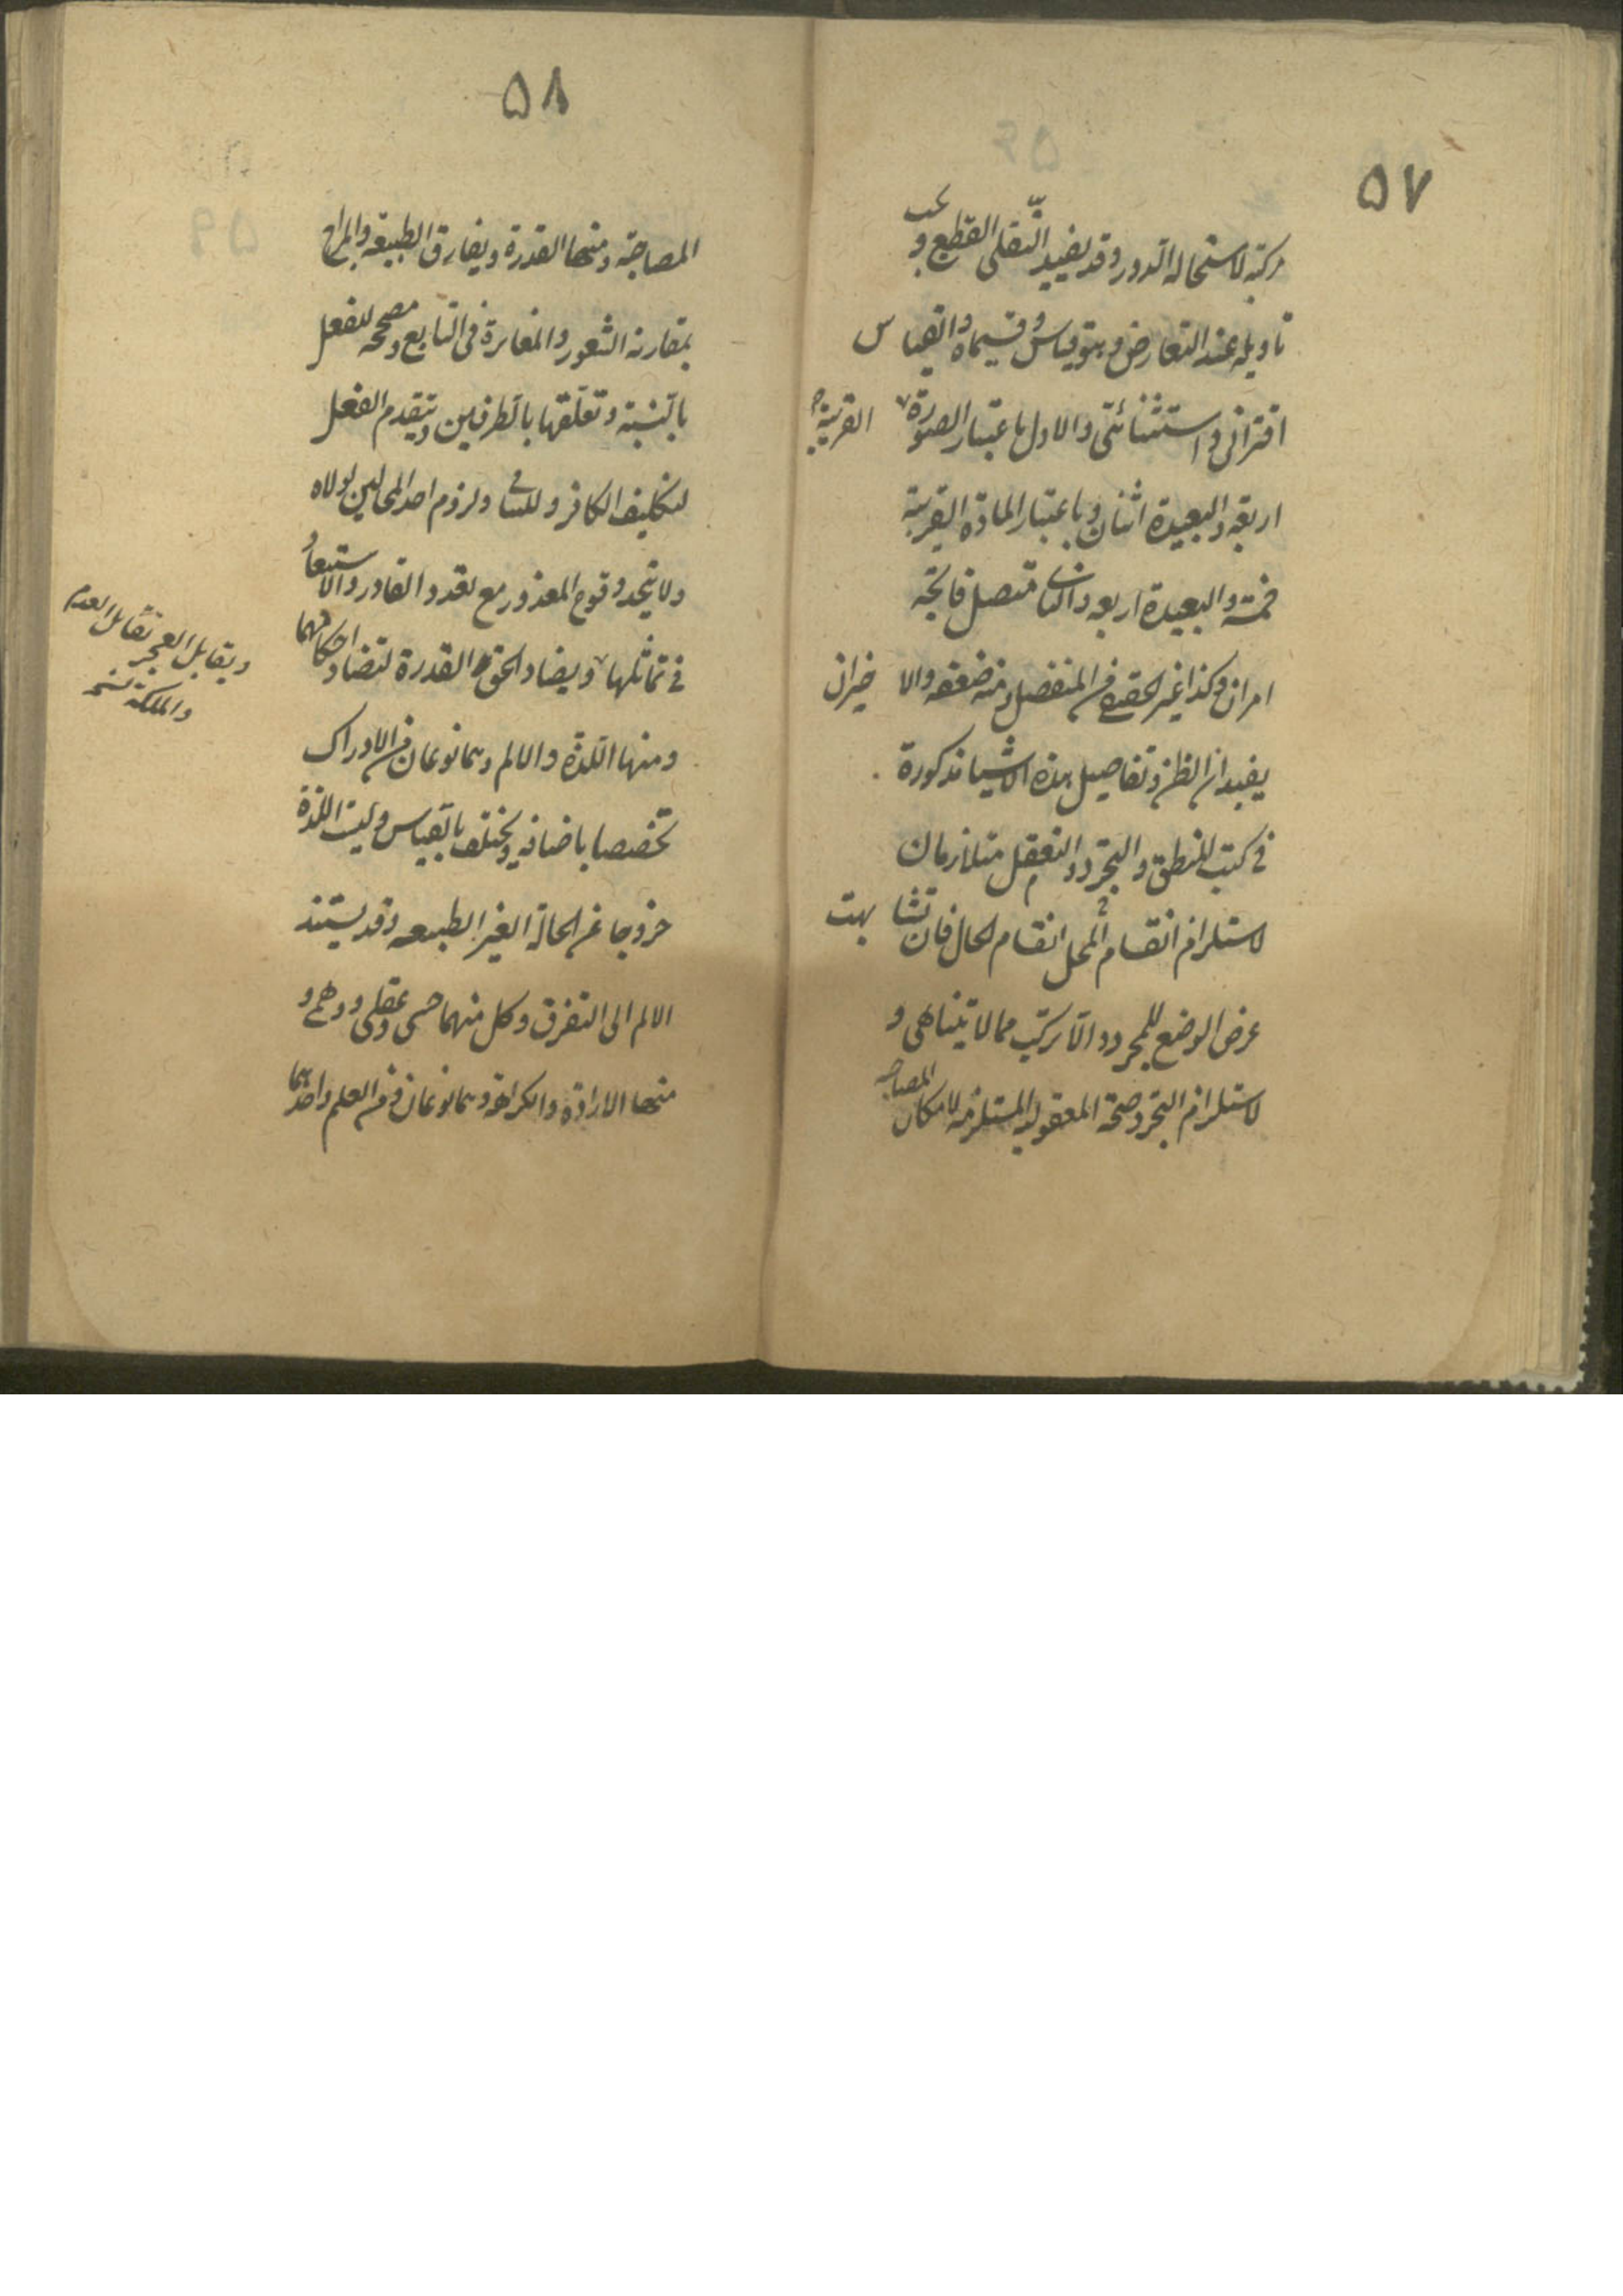 ٥٧
مركبة لاستحالة الدور وقد يفيد النقلى القطع و يجب
تاويله عند التعارض وهو قياس وقسيماه والقياس
اقترانى و استثنائى والاول باعتبار الصورة القريبة
اربعة والبعيدة اثنان و باعتبار المادة القريبة
خمسة والبعيدة اربعه والثانى متصل ناتجة
امران وكذا غير الحقيقى من المنفصل ومنه ضعفه والاخيران
يفيدان الظن وتفاصيل هذه الاشيا مذكورة
فى كتب المنطق والتجرد والتعقل متلازمان
لاستلزام انقسام المحل انقسام الحال فان تشابهت
عرض الوضع للمجرد والا تركب مما لا يتناهى و
لاستلزام التجرد صحة المعقولية المستلزمة لامكان المصاحبه
٥٨
المصاحبة ومنها القدرة ويفارق الطبيعة والمزاج
بمقارنه الشعور والمغايرة فى التابع ومصححه للفعل
بالنسبة وتعلقها بالطرفين وتتقدم الفعل
لتكليف الكافر وللتنافى ولزوم احد المحالين لولاه
ولا يتحد وقوع المقدور مع تعدد القادر ولا استبعاد
فى تماثلها ويضاد الخلق القدرة لتضاد احكامهما
ويقابل العجز تقابل العدم
والملكة
ومنها اللذة والالم وهما نوعان من الادراك
تخصصا باضافه ويختلف بالقياس وليست اللذة
خروجا عن الحالة الغير الطبيعه وقد يستند
الالم الى التفرق وكل منهما حسى وعقلى ووهمى و
منها الارادة والكراهة وهما نوعان من العلم واحدهما